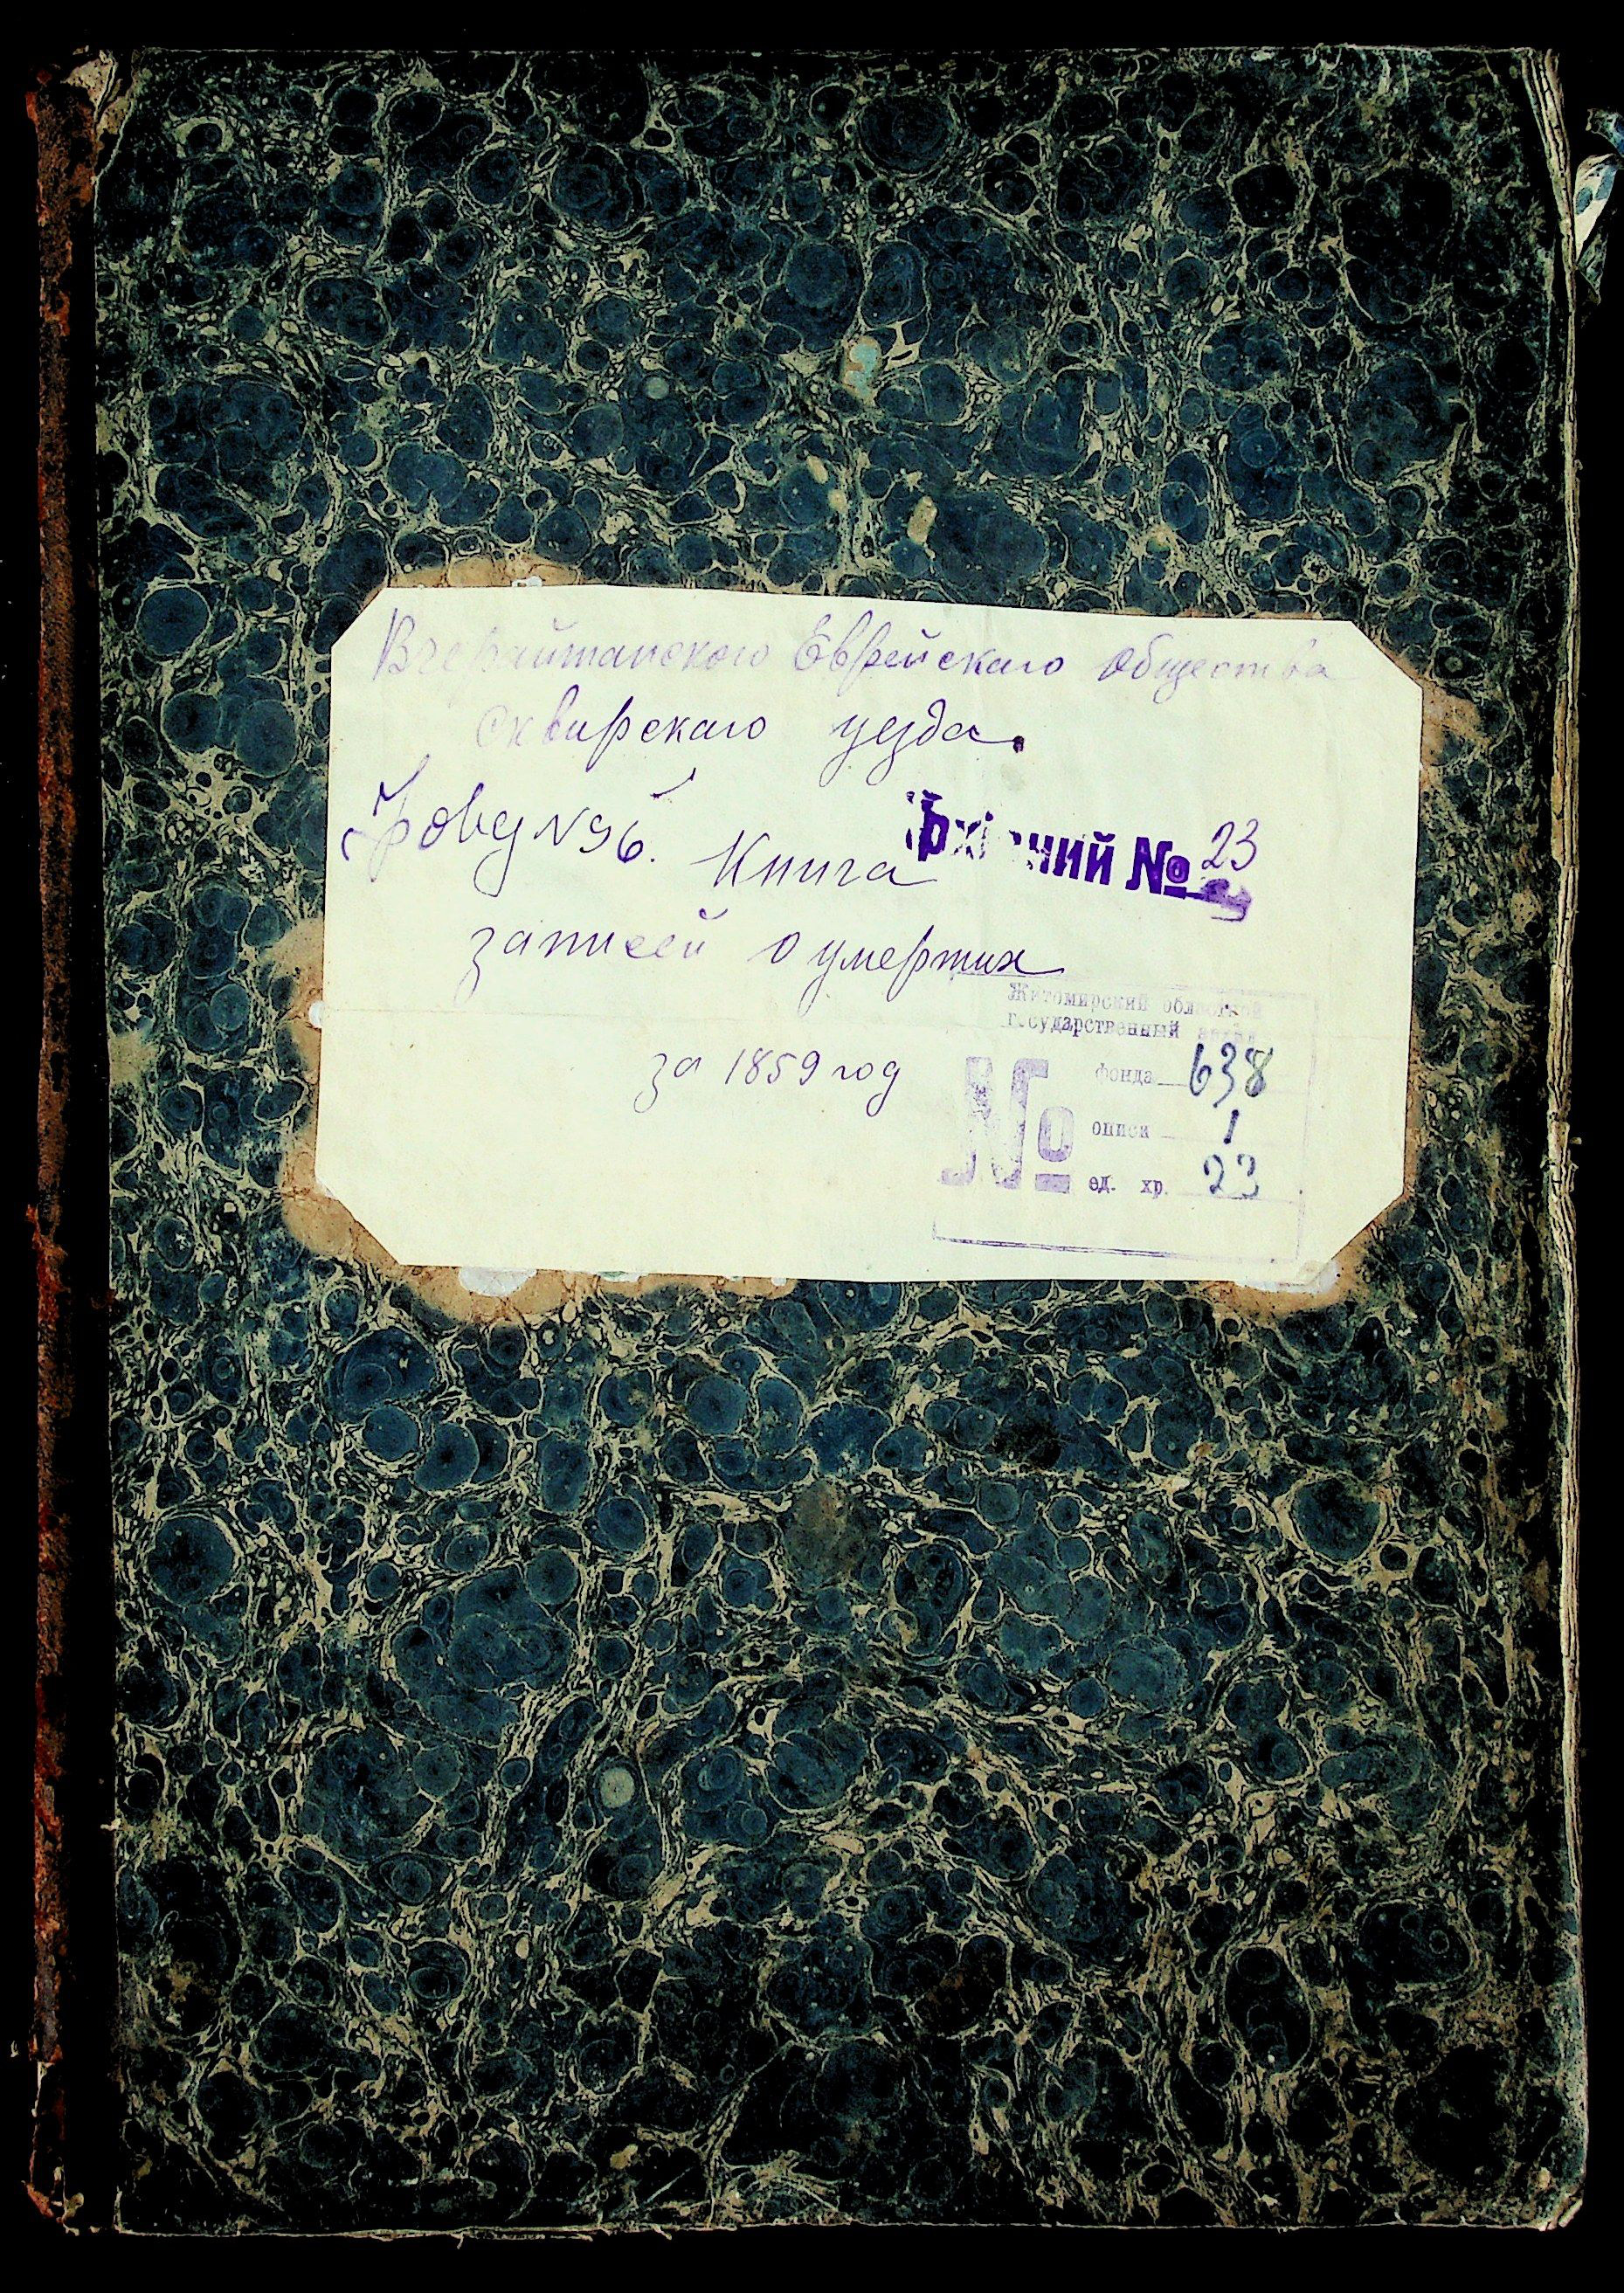 Вчерайшанского Еврейскаго общества
сквирскаго уезда.
Фонд N96.
Книга
Архівний № 23
записей о умерших
за 1859 год
Житомирский областной
государственный архив
№
фонда 638
описи 1
ед. хр. 23